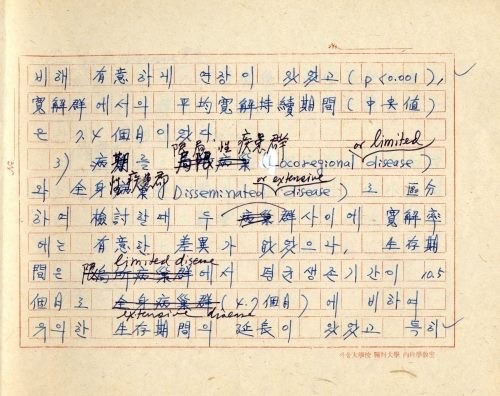 비해 有意하게 연장이 있었고 (p<0.001),
寬解群에서의 平均寬解持續期間 (中央値)
은 7.4 個月이었다.
限局性 疾患群 or limited
3) 病期를 局限病巢 (Locoregional disease)
性疾患群 or extensive
와 全身病巢 (Disseminated disease) 로 區分
하여 檢討할때 두 病巢群사이에 寬解率
에는 有意한 差異가 없었으나, 生存期
limited disease
間은 限局所病巢群에서 평균생존기간이 10.5
個月로 全身病巢群 (4.7個月) 에 비하여
extensive disease
유의한 生存期間의 延長이 있었고 특히
서울大學校 醫科大學 內科學敎室